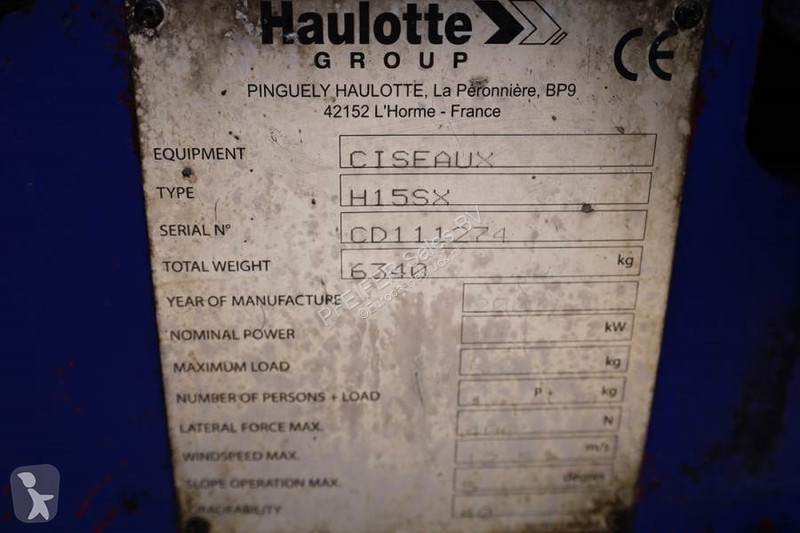 Haulotte
GROUP
CE
PINGUELY HAULOTTE, La Péronnière, BP9
42152 L'Horme - France
EQUIPMENT CISEAUX
TYPE H15SX
SERIAL N° CD111274
TOTAL WEIGHT 6340 kg
YEAR OF MANUFACTURE
NOMINAL POWER kW
MAXIMUM LOAD kg
NUMBER OF PERSONS + LOAD P+ kg
LATERAL FORCE MAX. N
WINDSPEED MAX. m/s
SLOPE OPERATION MAX. 5 degres
GRADEABILITY 40
PFEIFER Sales BV